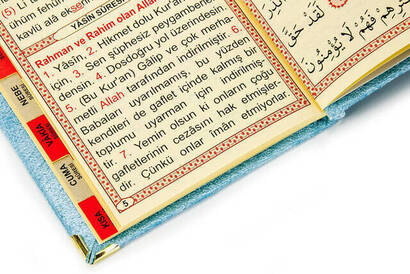 (5) Li
ühüm fehü
kavlü alâ ekse
YÂSÎN SÛRESİ
Rahman ve Rahim olan Allah
1. Yâsîn. 2. Hikmet dolu Kur'an
3. Sen şüphesiz peygamberler
densin. 4. Dosdoğru yol üzerindesin.
5. (Bu Kur'an) Gâlip ve çok merha
metli Allah tarafından indirilmiştir. 6.
Babaları uyarılmamış, bu yüzden
kendileri de gaflet içinde kalmış bir
toplumu uyarman için indirilmiş-
tir. 7. Yemin olsun ki onların çoğu
gafletlerinin cezasını hak etmişler-
dir. Çünkü onlar îmân etmiyorlar.
5
NEBE
SÛRESİ
VAKIA
CUMA
SÛRESİ
KISA
فَهُمْ لَا يُؤْمِنُونَ